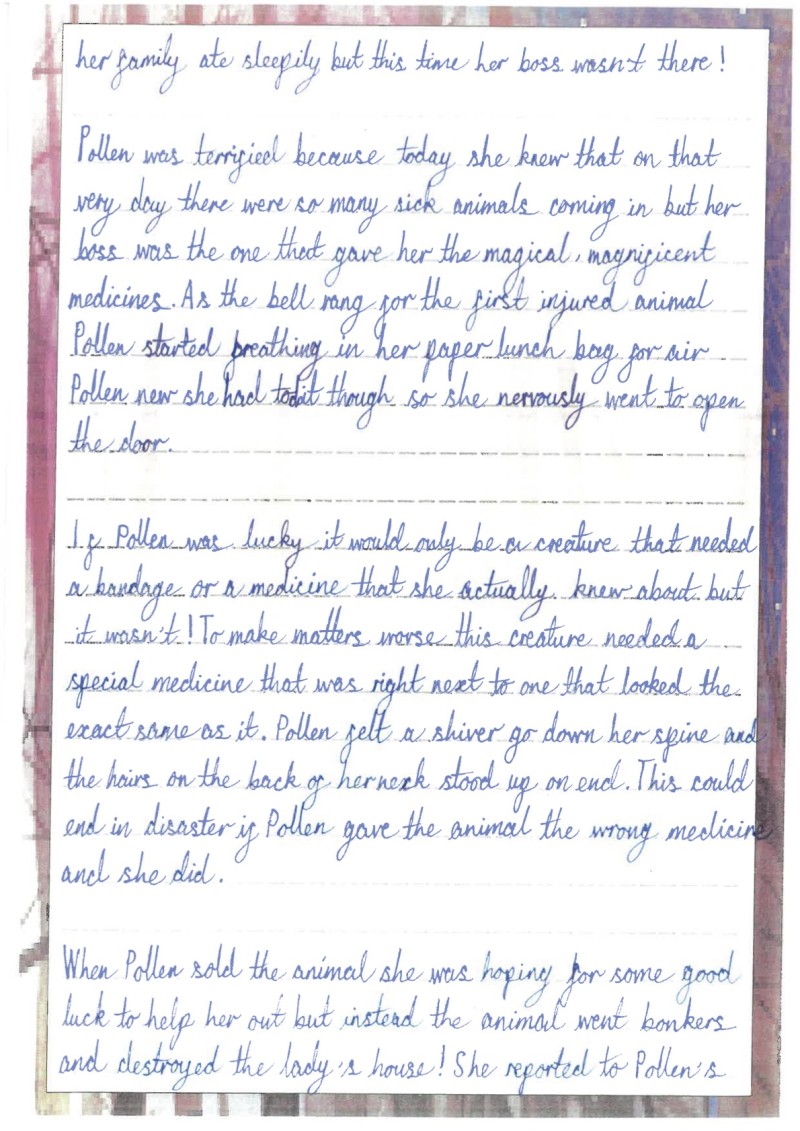 her family ate sleepily but this time her boss wasn't there !
Pollen was terrified because today she knew that on that
very day there were so many sick animals coming in but her
boss was the one that gave her the magical, magnificent
medicines. As the bell rang for the first injured animal
Pollen started breathing in her paper lunch bag for air
Pollen new she had to do it though so she nervously went to open
the door.
If Pollen was lucky it would only be a creature that needed
a bandage or a medicine that she actually knew about but
it wasn't ! To make matters worse this creature needed a
special medicine that was right next to one that looked the
exact same as it. Pollen felt a shiver go down her spine and
the hairs on the back of her neck stood up on end. This could
end in disaster if Pollen gave the animal the wrong medicine
and she did.
When Pollen sold the animal she was hoping for some good
luck to help her out but instead the animal went bonkers
and destroyed the lady's house! She reported to Pollen's